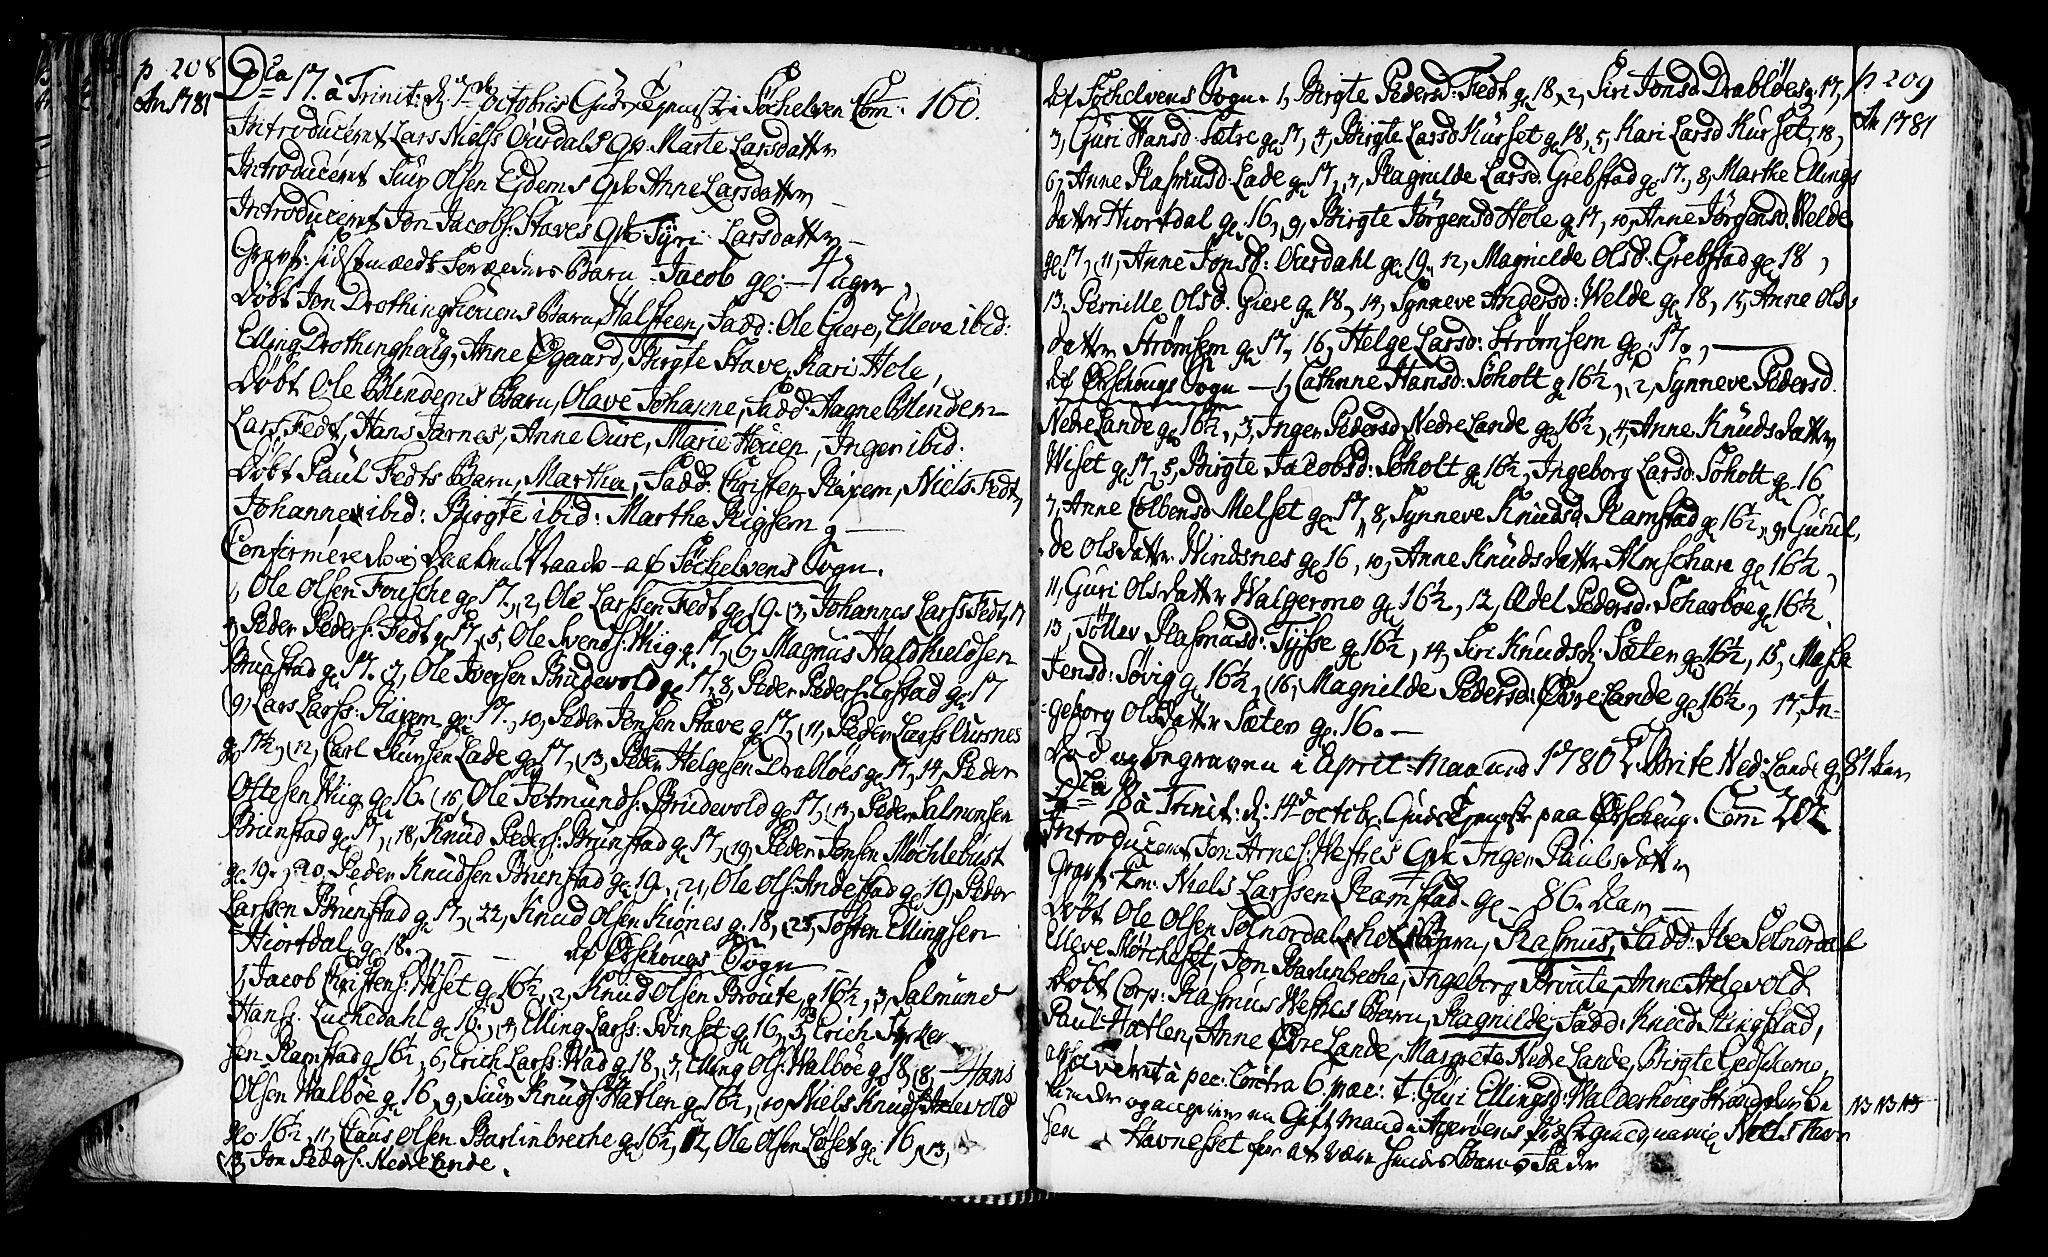 p 208
An 1781
Dca 17. à Trinit: d 7de octobris Guds Tjenest i Söchelven Com: 160.
Introduceret Lars Niels Ourdals qv: Marte Larsdatter
Introduceret Siur Olsen Eidems qv: Anne Larsdatter
Introduceret Jon Jacobs: Staves qv: Tyri Larsdatter
Gravf: sidstmældte Barn Jacob gl: 4 uger,
Döbt Jon Drothinghougens Barn, Halsteen, Fadd: Ole Giere, Elleve ibid:
Elling Drothinghoug, Anne Øgaard, Birgte Stave, Kari Hole,
Döbt Ole Blindems Barn, Olave Johanne, Fadd: Aagne Blindem
Lars Fedt, Hans Jarnes, Anne Oure, Marie Houen, Inger ibid:
Döbt Paul Fedts Barn, Martha, Fadd: Christen Ravem, Niels Fedt,
Johanne ibid: Birgte ibid: Marthe Rigsem
Confirmerede af Söchelvens Sogn.
1, Ole Olsen Fousche gl 17. 2, Ole Larssen Fedt gl 19. 3, Johannes Larss Fedt, 17
4, Peder Peders: Fedt gl 17, 5, Ole Svends: Wiig gl 17, 6, Magnus Haldkieldsen
Brunstad gl 17. 7, Ole Iversen Brudevold gl 17, 8, Peder Peders: Lostad gl 17
9, Lars Larss: Ravem gl 17., 10, Peder Jonsen Stave gl 17, 11, Peder Larss Oursnes
gl 17½, 12, Carl Siursen Lade gl 17, 13, Peder Helgesen Drabløes gl 17, 14, Peder
Oftesen Wiig gl 16. 16, Ole Tormunds: Brudevold gl 17, 17, Peder Salmonsen
Brunstad gl 17, 18, Knud Peders: Brunstad gl 17, 19, Peder Jonsen Möchlebust
gl 19. 20, Peder Knudsen Brunstad gl 19. 21, Ole Ols: Andestad gl 19, Peder
Larssen Brunstad gl 17, 22, Knud Olsen Kiönes gl 18, 23, Tosten Ellingsen
Hiortdal gl 18. af Ørschougs Sogn
1, Jacob Christens: Wiset gl 16½, 2, Knud Olsen Broute gl 16½, 3, Salmund
Hanss: Luchedahl gl 16., 4, Elling Larss: Svinset gl 16, 5, Erich
sen Ramstad gl 16½, 6, Erich Larss: Wad gl 18, 7, Elling Ols: Walböe gl 18, 8, Hans
Olsen Walböe gl 16, 9, Siur Knuds: Hatlen gl 16½, 10, Niels Knuds: Abelvold
gl 16½, 11, Claus Olsen Barlinbreche gl 16½, 12, Ole Olsen Löset gl 16, 13,
13, Jon Peders: Nedre Lande.
p 209
An 1781
Af Söchelvens Sogn. 1, Birgte Pedersd: Fedt gl 18, 2, Siri Jonsd Drabløes gl 17,
3, Guri Hansd: Sætre gl 17, 4, Birgte Larsd Kurset gl 18, 5, Kari Larsd Kurset, 18,
6, Anne Rasmusd: Lade gl 17, 7, Ragnilde Larsd. Grebstad gl 17., 8, Marthe Ellings
datter Hiortdal gl 16, 9, Birgte Jörgensd Hole gl 17, 10, Anne Jörgensd. Welde
gl 17, 11, Anne Jonsd: Ourdahl gl 19. 12, Magnilde Olsd: Grebstad gl 18,
13, Pernille Olsd. Giere gl 18, 14, Synneve Angersd: Welde gl 18, 15, Anne Ols
datter Strømsem gl 17, 16, Helge Larsd: Strømsem gl 17.,
Af Ørschougs Sogn 1, Cathrine Hansd: Søholt gl 16½, 2, Synneve Pedersd.
Nedre Lande gl 16½, 3, Inger Pedersd Nedre Lande gl 16½, 4, Anne Knudsdatter
Wiset gl 17, 5, Birgte Jacobsd: Søholt gl 16½, Ingeborg Larsd: Søholt gl 16
7, Anne Colbensd Melset gl 17, 8, Synneve Knudsd: Ramstad gl 16½, 9, Gunil,
de Olsdatter Windsnes gl 16, 10, Anne Knudsdatter Almschare gl 16½,
11, Guri Olsdatter Walgermo gl 16½, 12, Adel Pedersd: Scharböe gl 16½.
13, Töllev Rasmusd: Tysse gl 16½, 14, Siri Knudsd: Sæter gl 16½, 15, Masse
Jensd: Søvig gl 16½, 16, Magnilde Pedersd: Øvre Lande gl 16½, 17, In-
geborg Olsdatter Sæter gl 16.
Död og begraven i April Maaned 1780 Brite Ned: Lande gl 81 Aar
Dca 18 à Trinit: d: 14de octobr. Guds Tjenest paa Ørschoug. Com 202
Introduceret Jon Arnes: Westres qv: Inger Paulsdatter
Gravf. Niels Larssen Ramstad gl 86. Aar
Döbt Ole Olsen Solnordals Barn, Rasmus, Fadd: Ibe Solnordal
Elleve Mörcheset, Jon Barlinbreche, Ingeborg Broute, Anne Abelvold
Döbt Corp: Rasmus Westres Barn, Ragnilde, Fadd: Knud Ringstad,
Paul Hatlen, Anne Øvre Lande, Margrete Nedre Lande, Birgte Gedscherne,
absolveret à pec: contra 6 præc: Guri Ellingsd: Walderhoug be
kiender og angiver en Gift mand Niels Havn
sen Havneset for at være hendes Barns Fader